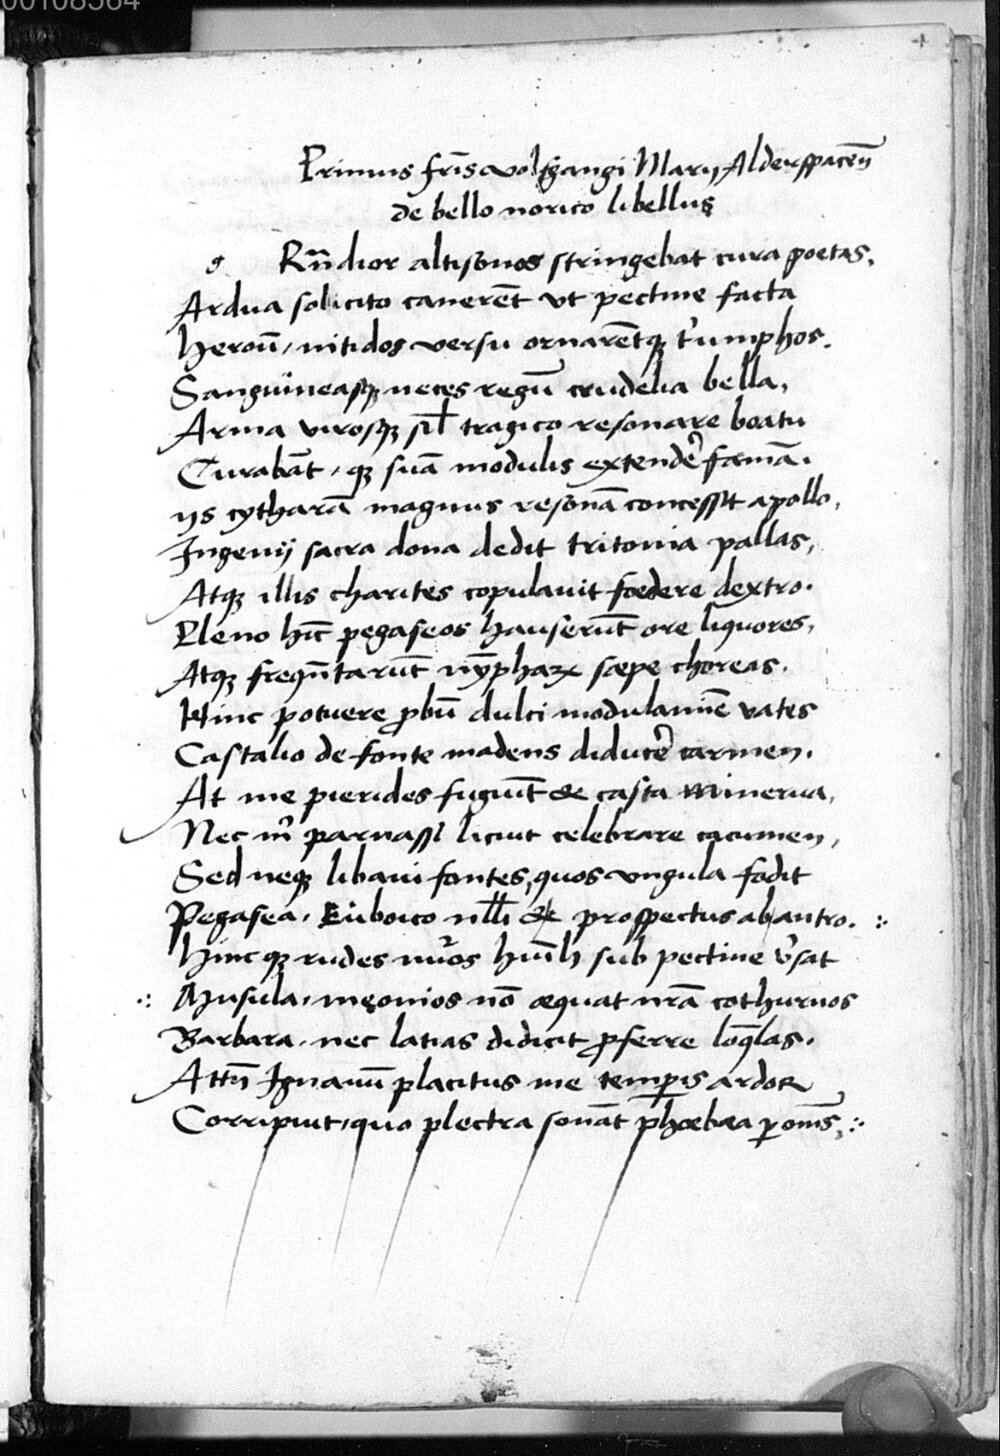 00108564
4
Primus fr̄is volfgangi Marij Alderspaceñ
de bello norico libellus
g Rn̄dior altisonos stringebat cura poetas,
Ardua solicito canerēt vt pectine facta
Heroū, nitidos versu ornarētqꝫ t'umphos.
Sanguineasqꝫ neces regū crudelia bella,
Arma virosqꝫ sil̄ tragico resonare boatu
Curabāt, qꝫ suā modulis extender̄ famā.
ijs cytharā magnus resonā concessit apollo,
Ingenij sacra dona dedit tritonia pallas,
Atqꝫ illis charites copulauit foedere dextro.
Pleno hīc pegaseos hauserūt ore liquores,
Atqꝫ freqn̄tarūt nȳphaꝝ sæpe choreas.
Hinc potuere ꝓbū dulci modulamīe vates
Castalio de fonte madens diducer̄ carmen.
At me pierides fugiūt & casta minerua,
Nec m̄ parnassi licuit celebrare cacumen,
Sed neqꝫ libaui fontes, quos vngula fodit
Pegasea, Euboico nll̄i & prospectus ab antro. :
Hinc qꝫ rudes nūros huīli sub pectine v̄sat
.: Musula, męonios nō æquat nr̄a cothurnos
Barbara, nec latias didicit ꝓferre loq̄las.
Attn̄ Ignauū placitus me temꝑis ardor
Corripuit, quo plectra sonāt phoebæa ꝑ om̄s, :